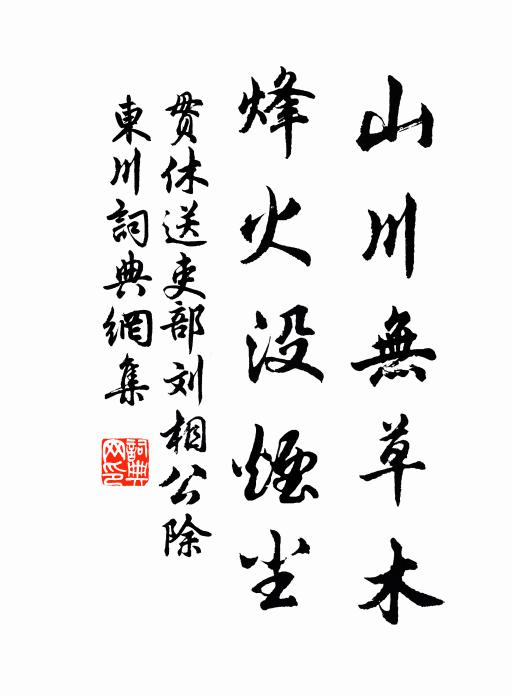 山川無草木
烽火没煙尘
贯休送吏部刘相公除
東川詞典網集
詞典
网印